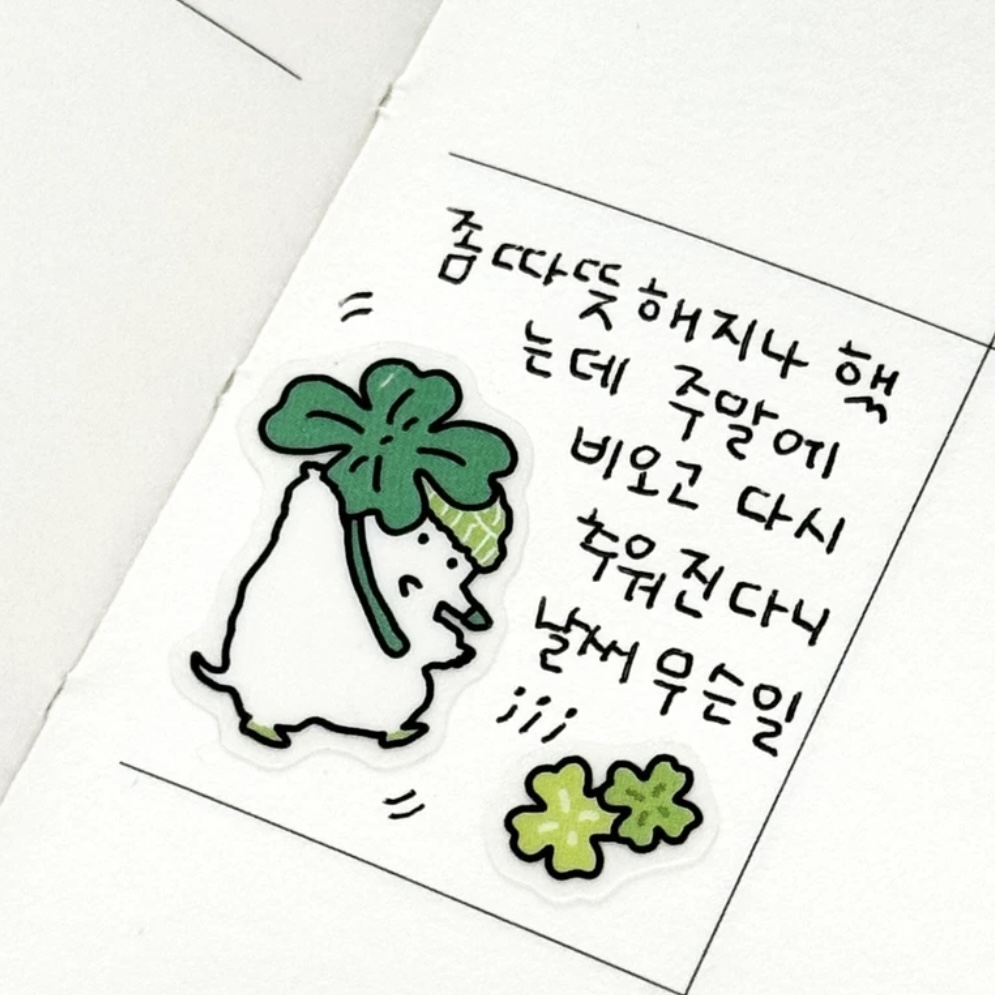 좀 따뜻해지나 했
는데 주말에
비오고 다시
추워진다니
날씨 무슨일
;;;